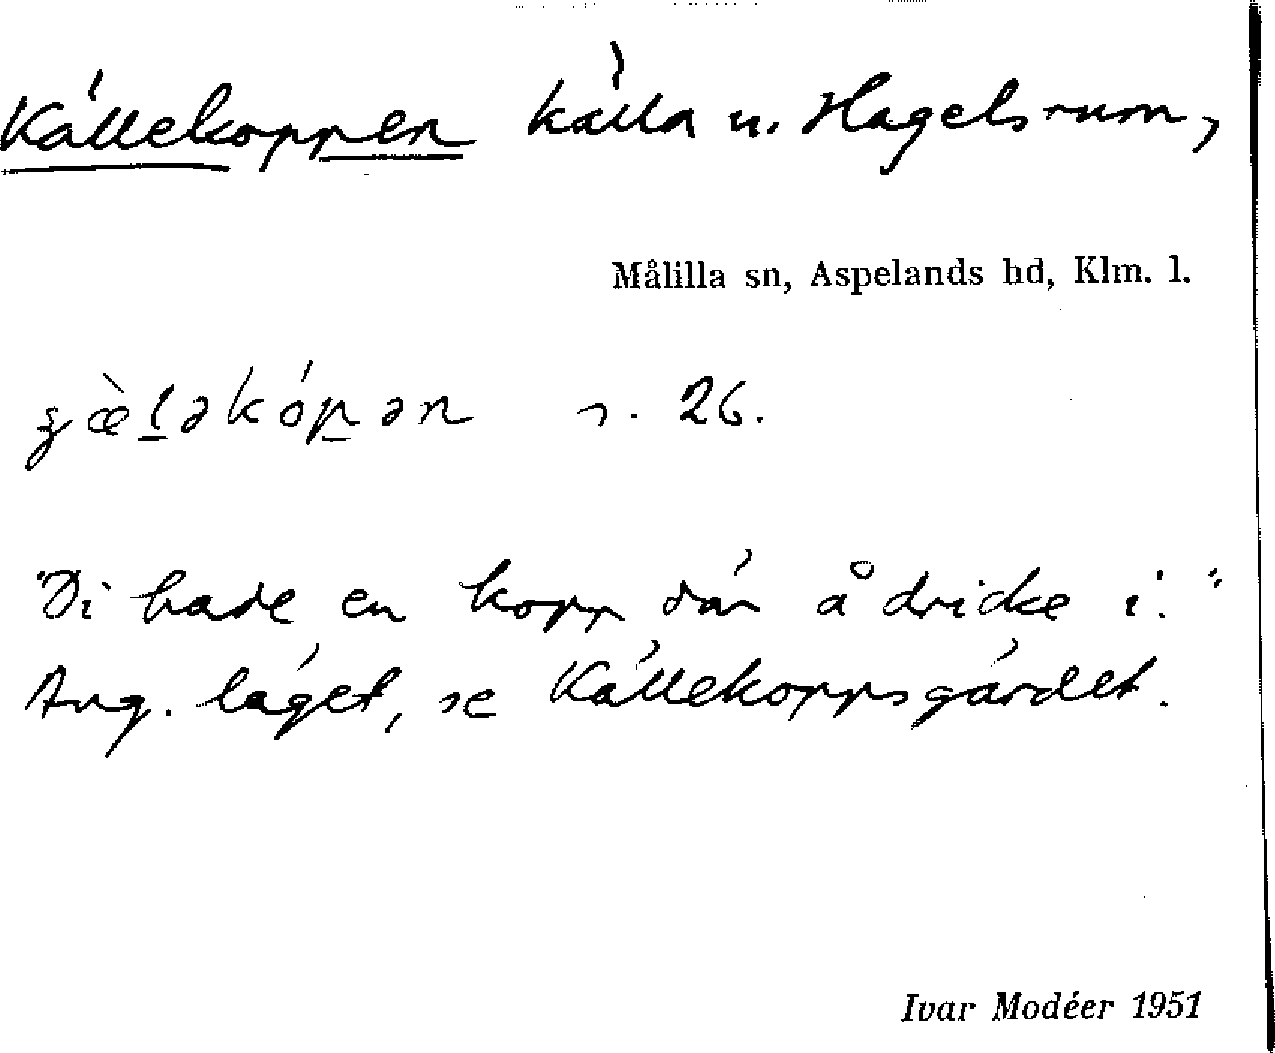 Källekoppen källa u. Hagelsrum,
Målilla sn, Aspelands hd, Klm. l.
s. 26.
"Di hade en kopp där å dricke i."
Ang. läget, se Källekoppsgärdet.
Ivar Modéer 1951